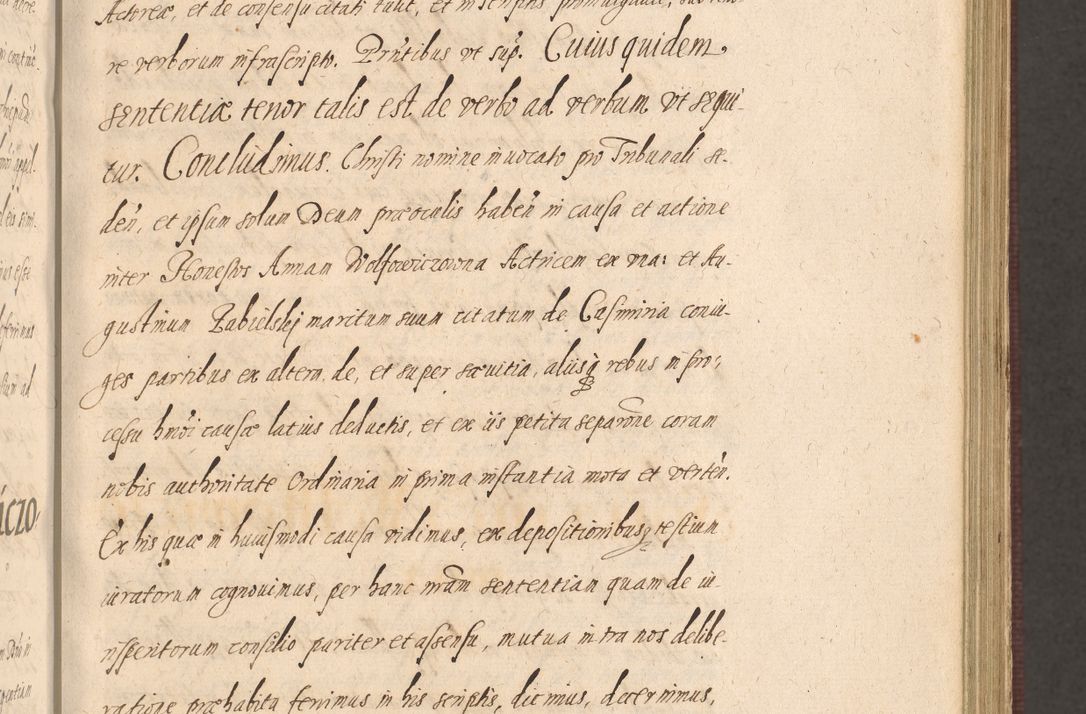 Actoreæ, et de consensu citati tulit, et in scriptis promulgauit, sub teno-
re verborum infrascripto. Prñtibus vt sup. Cuius quidem
sententiæ tenor talis est de verbo ad verbum vt sequi-
tur. Concludimus. Christi nomine inuocato pro Tribunali se-
deñ, et ipsum solum Deum præ oculis habeñ in causa et actione
inter Honestos Annam Wolfowiczowna Actricem ex vna: et Au-
gustinum Zabielskj maritum suum citatum de Casimiria coniu-
ges partibus ex altera, de, et super sæuitia, aliisq̃ rebus in pro-
cessu hmõi causæ latius deductis, et ex iis petita separõne coram
nobis authoritate Ordinaria in prima instantia mota et verteñ.
Ex his quæ in huiusmodi causa vidimus, ex depositionibusq̃ testium
iuratorum cognouimus, per hanc nr̃am sententiam quam de iu-
risperitorum consilio pariter et assensu, mutua intra nos delibe-
ratione præhabita ferimus in his scriptis, dicimus, decernimus,